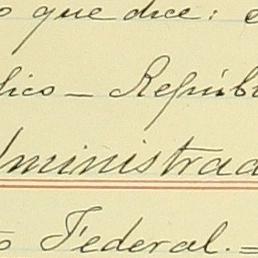 o que dice:
lico — Repúbl
dministrad
o Federal. =